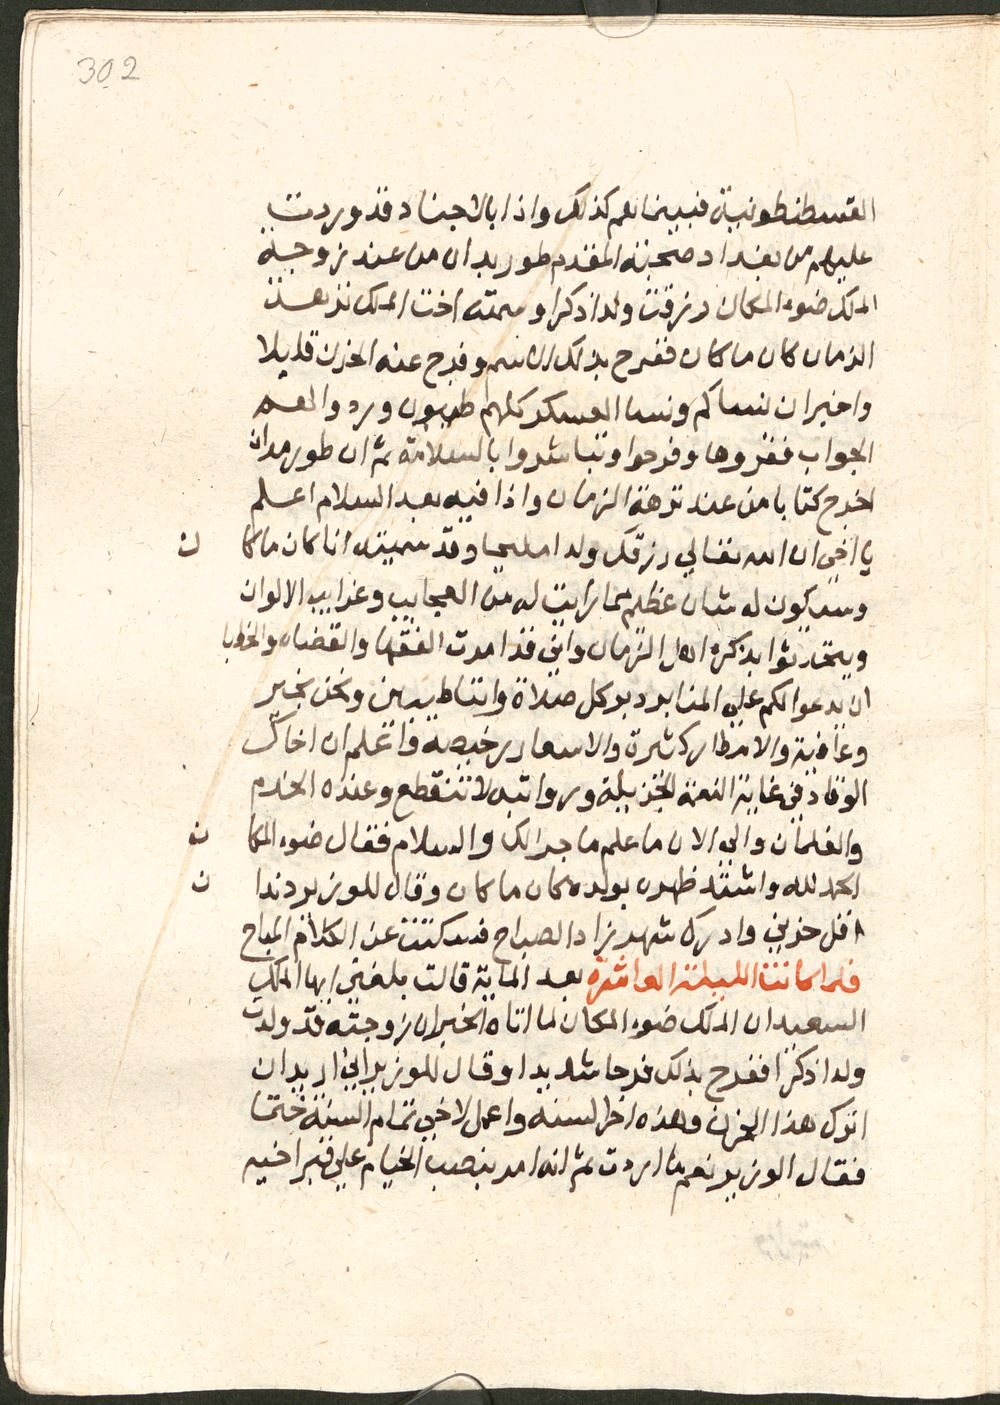 302
القسطنطونية فبينما هم كذلك واذا بالاجناد قد وردت
عليهم من بغداد صحبة المقدم طوربدان من عند زوجة
الملك ضوء المكان رزقت ولدا ذكرا وسمته اخت الملك نزهت
الزمان كان ما كان ففرح بذلك الاسم وفرج عنه الحزن قليلا
واخبر ان نساكم ونسا العسكر كلهم طيبون وردوا لهم
الجواب فقروها وفرحوا وتباشروا بالسلامة ثم ان طورمدان
اخرج كتابا من عند نزهة الزمان واذا فيه بعد السلام اعلم
يا اخي ان الله تعالي رزقك ولدا مليحا وقد سميته انا كان ماكا ن
وسيكون له شان عظيم مما رايت له من العجايب وغرايب الالوان
ويتحدثوا بذكره اهل الزمان واني قد امرت الفقها والقضاه والخطبا
ان يدعوا لكم علي المنابر دبر كل صلاة واننا طيبين ونحن بخير
وعافية والامطار كثيرة والاسعار رخيصه فاتعلم ان اخاك
الوقاد في غاية النعمة الجزيلة ورواتبه لا تنقطع وعنده الخدم
والغلمان والي الان ما علم ما جرا لك والسلام فقال ضوء المكا ن
الحمد لله واشتد ظهري بولدي كان ما كان وقال للوزير دندا ن
اقل حزني وادرك شهرزاد الصباح فسكتت عن الكلام المباح
فلما كانت الليلة العاشرة بعد الماية قالت بلغني ايها الملك
السعيد ان الملك ضوء المكان لما اتاه الخبر ان زوجته قد ولدت
ولدا ذكرا ففرح بذلك فرحا شديدا وقال للوزير اني اريد ان
اترك هذا الحزن وهذه اخر السنه واعمل لاخي تمام السنة ختما
فقال الوزير نعم ما اردت ثم انه امر بنصب الخيام علي قبر اخيه